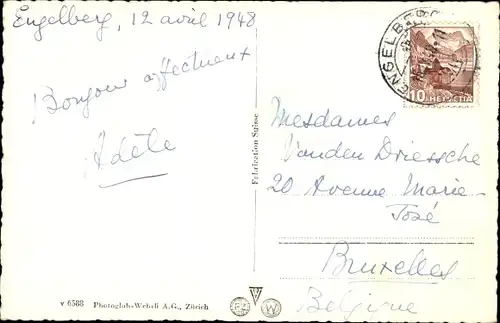 Engelberg, 12 avril 1948
Bonjour affectueux
Adèle
ENGELBERG
10 HELVETIA
Mesdames
Vanden Driessche
20 Avenue Marie-
José
Bruxelles
Belgique
Fabrication Suisse
v 6588 Photoglob-Wehrli A.G., Zürich